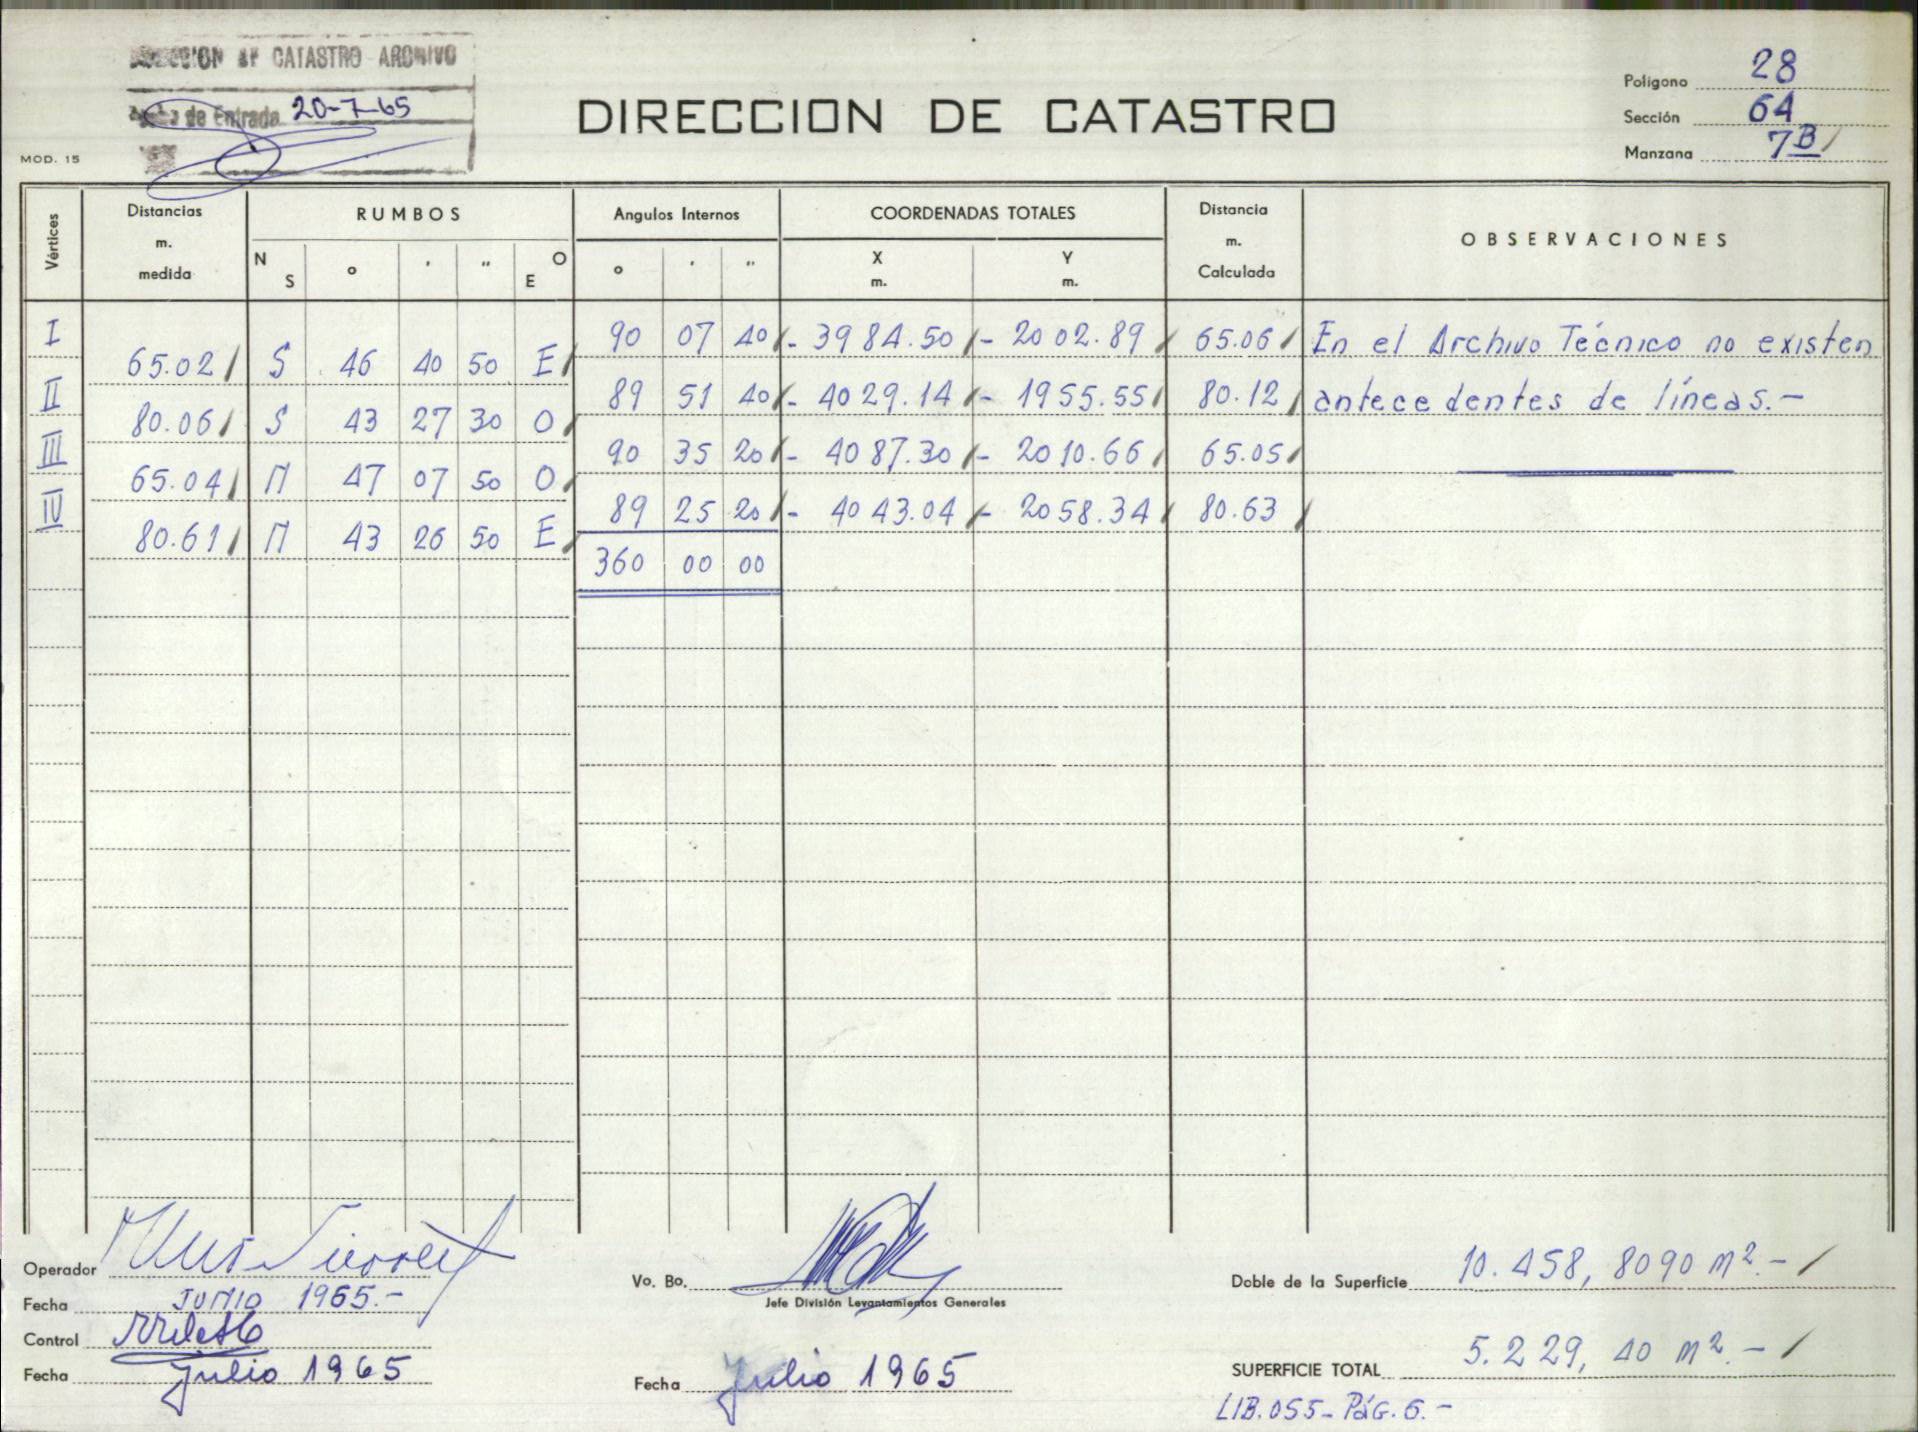 DIRECCION DE CATASTRO ARCHIVO
de Entrada 20-7-65
MOD. 15
DIRECCION DE CATASTRO
Poligono 28
Sección 64
Manzana 7B
Vértices
Distancias m. medida
RUMBOS
N S o ' " O E
Angulos Internos
o ' "
COORDENADAS TOTALES
X m. Y m.
Distancia m. Calculada
OBSERVACIONES
I 90 07 40 - 3984.50 - 2002.89 65.06 En el Archivo Técnico no existen
65.02 S 46 40 50 E
II 89 51 40 - 4029.14 - 1955.55 80.12 antecedentes de líneas.-
80.06 S 43 27 30 O
III 90 35 20 - 4087.30 - 2010.66 65.05
65.04 N 47 07 50 O
IV 89 25 20 - 4043.04 - 2058.34 80.63
80.61 N 43 26 50 E
360 00 00
Operador
Fecha JUNIO 1965.-
Control
Fecha Julio 1965
Vo. Bo.
Jefe División Levantamientos Generales
Fecha Julio 1965
Doble de la Superficie 10.458, 8090 m².-
SUPERFICIE TOTAL 5.229, 40 m².-
LIB.055- PÁG.6.-